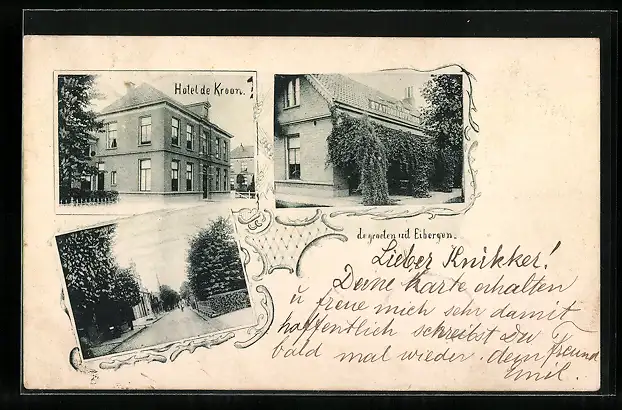 Hotel de Kroon.
de groeten uit Eibergen.
Lieber Knikker!
Deine Karte erhalten
u freue mich sehr damit
hoffentlich schreibst Du
bald mal wieder. dein Freund
Emil.